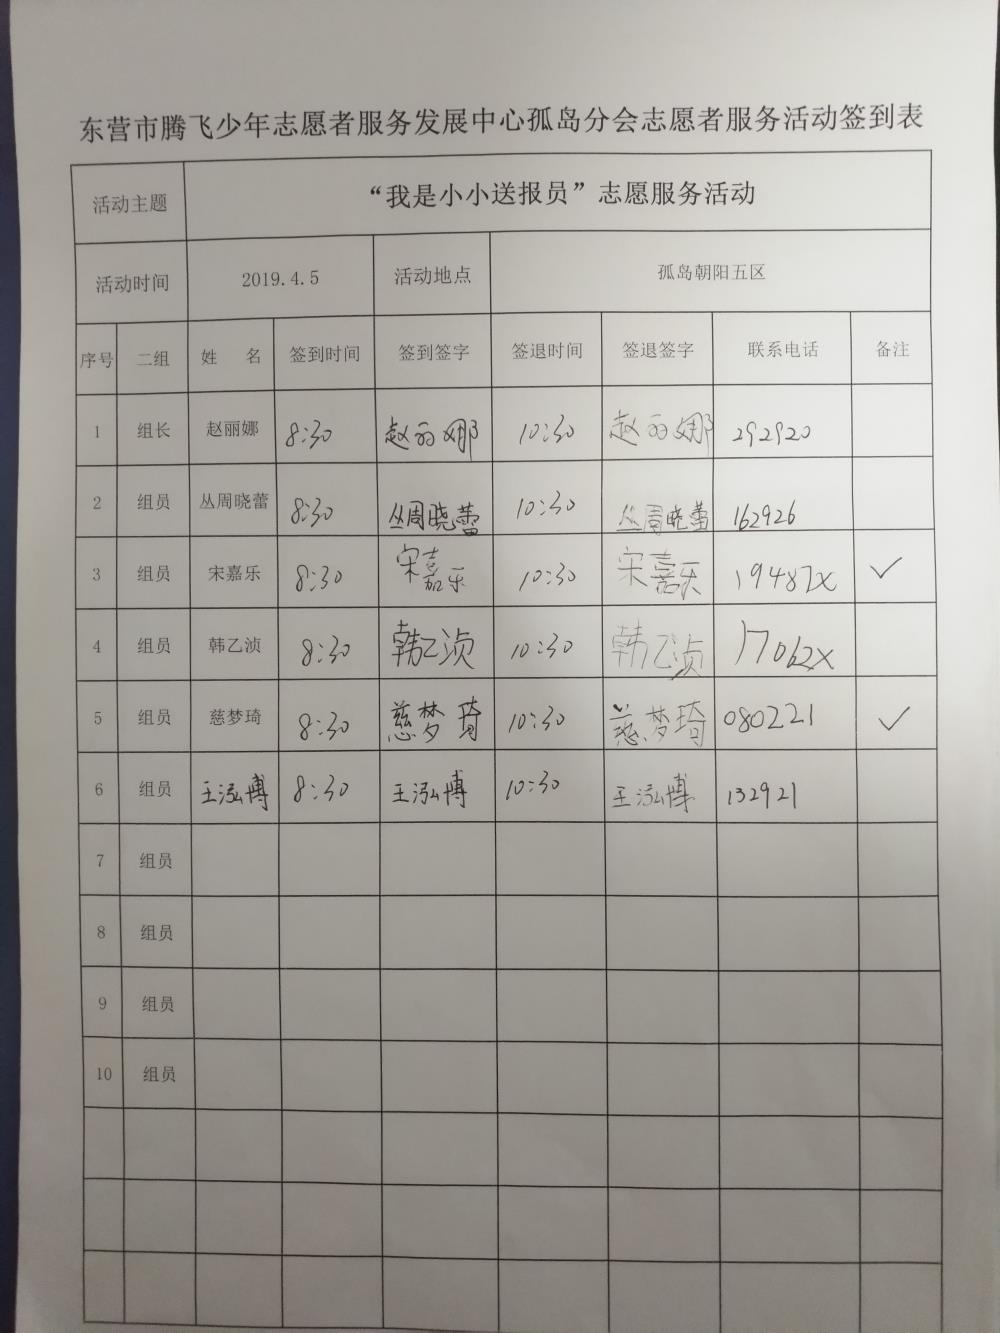 东营市腾飞少年志愿者服务发展中心孤岛分会志愿者服务活动签到表
活动主题 “我是小小送报员”志愿服务活动
活动时间 2019.4.5 活动地点 孤岛朝阳五区
序号 二组 姓 名 签到时间 签到签字 签退时间 签退签字 联系电话 备注
1 组长 赵丽娜 8:30 赵丽娜 10:30 赵丽娜 292920
2 组员 丛周晓蕾 8:30 丛周晓蕾 10:30 丛周晓蕾 162926
3 组员 宋嘉乐 8:30 宋嘉乐 10:30 宋嘉乐 19487X ✓
4 组员 韩乙浈 8:30 韩乙浈 10:30 韩乙浈 17062X
5 组员 慈梦琦 8:30 慈梦琦 10:30 慈梦琦 080221 ✓
6 组员 王泓博 8:30 王泓博 10:30 王泓博 132921
7 组员
8 组员
9 组员
10 组员